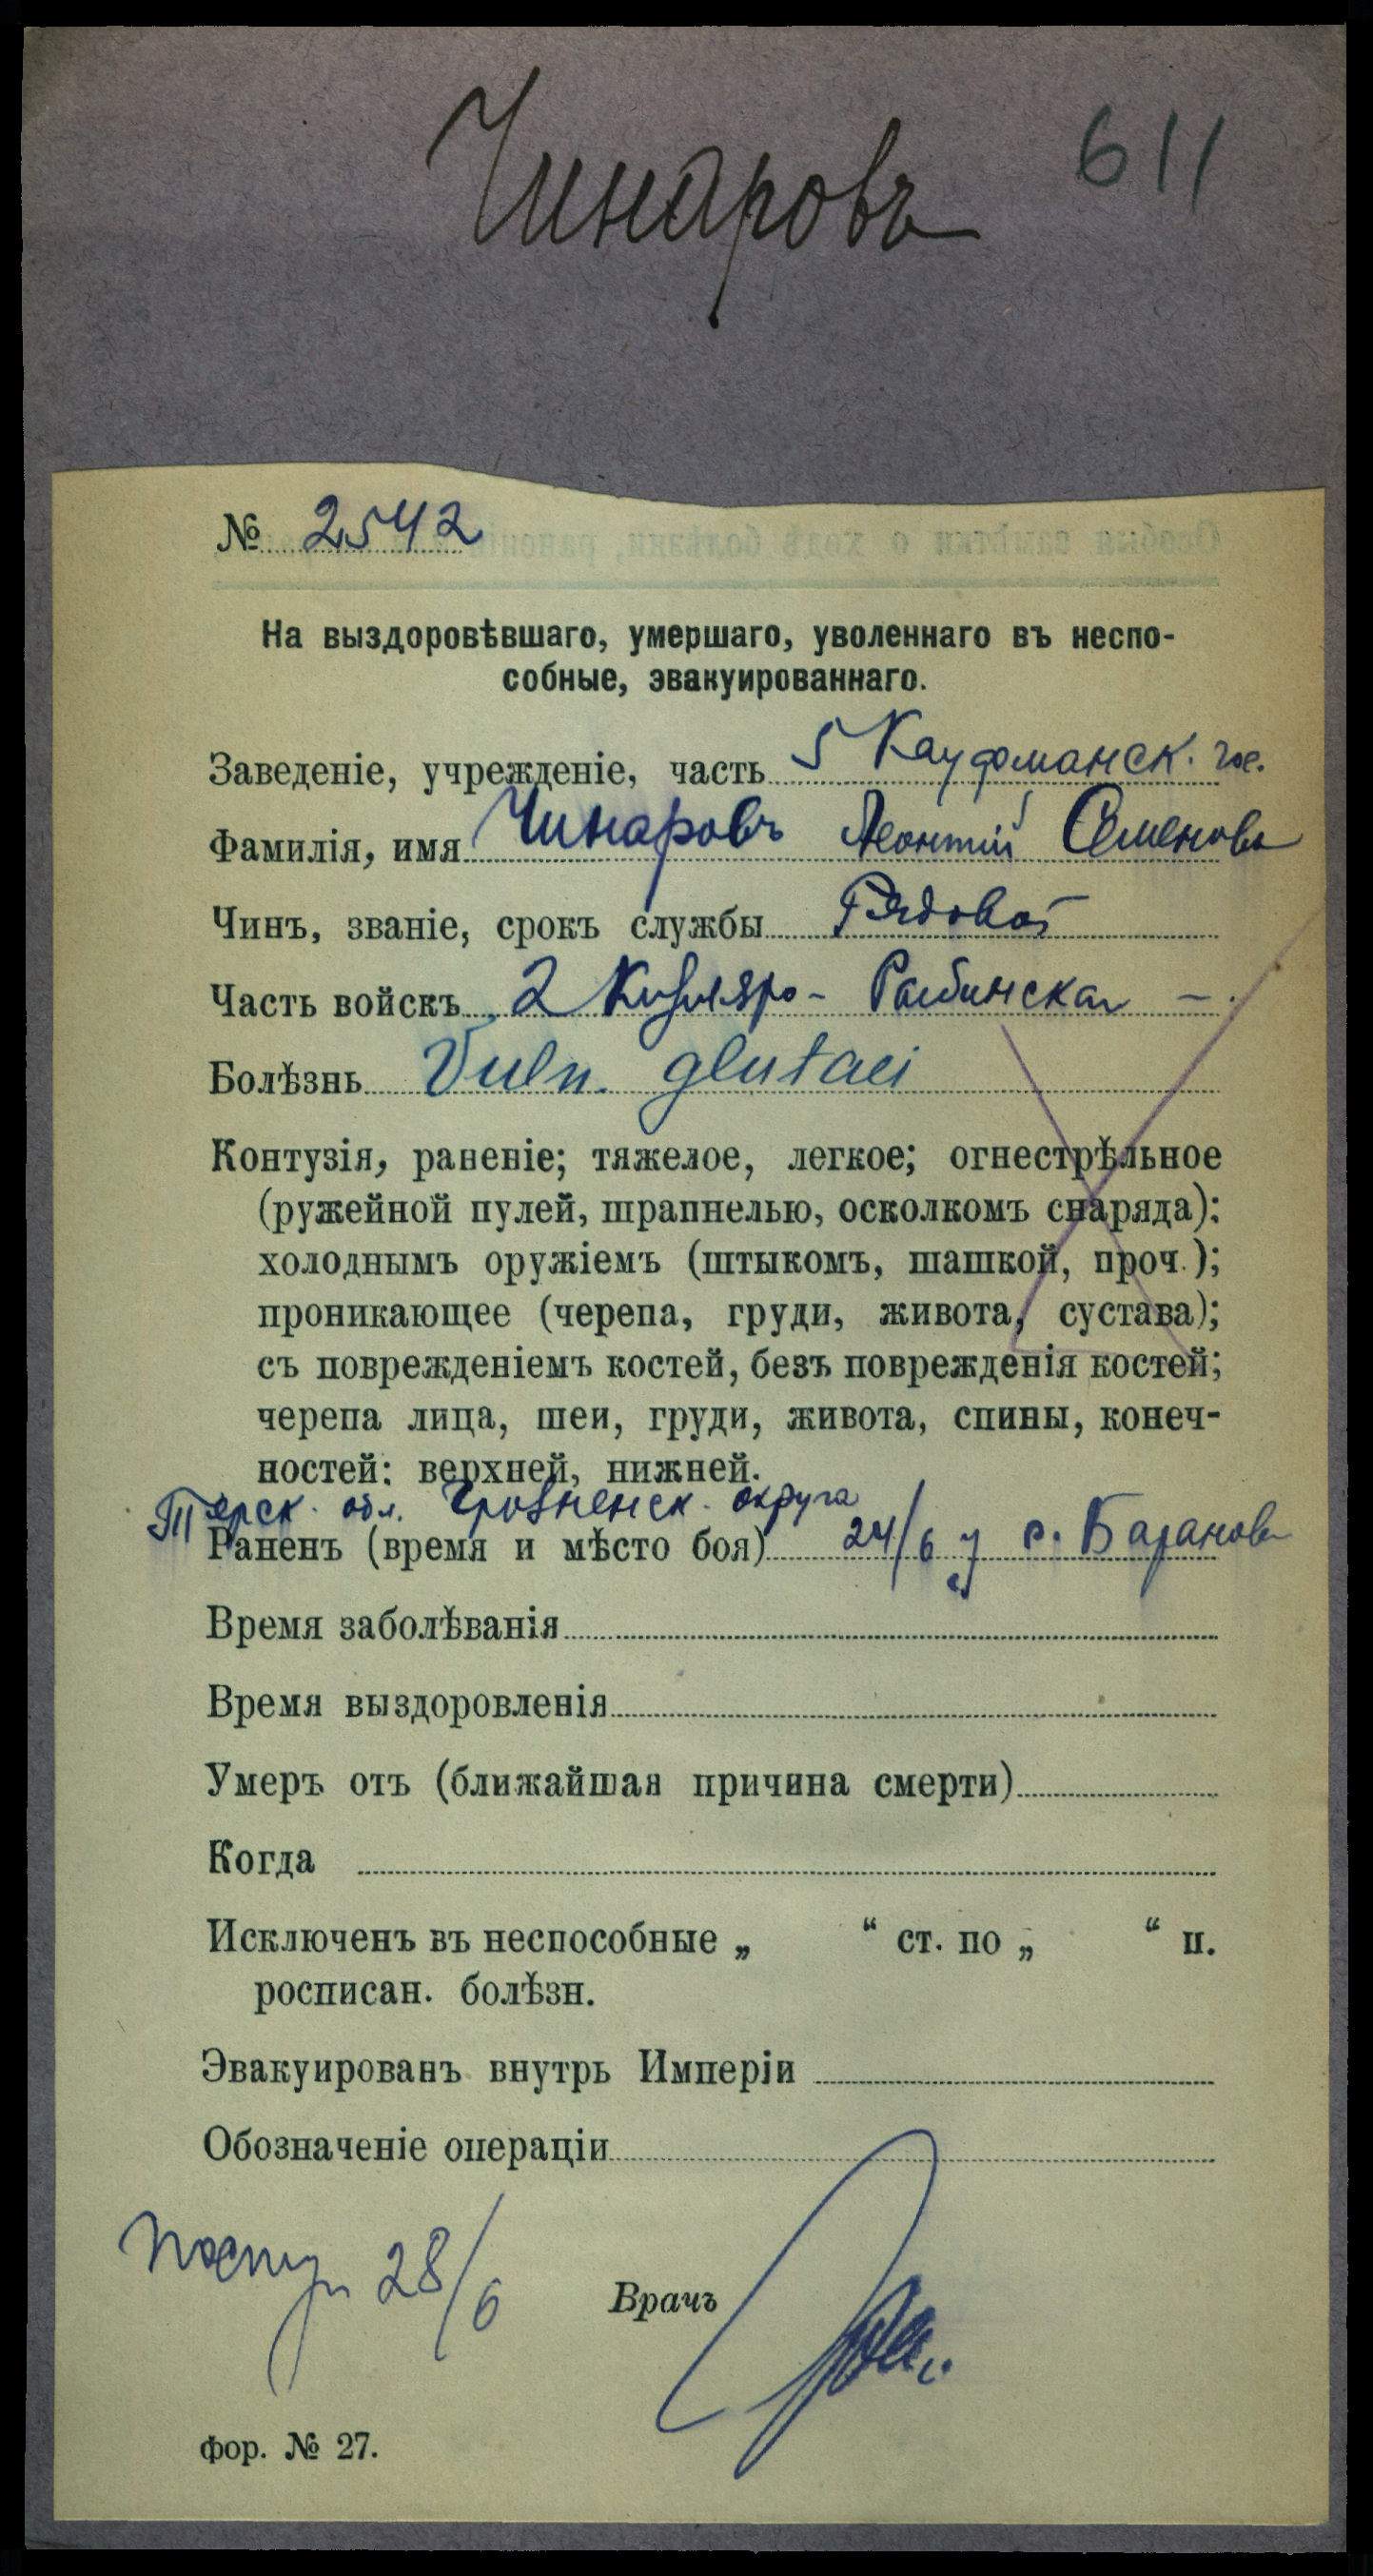 Чинаровъ 611
№ 2542
На выздоровѣвшаго, умершаго, уволеннаго въ неспо-
собные, эвакуированнаго.
Заведеніе, учрежденіе, часть 5 Кауфманск. гос.
Фамилія, имя Чинаровъ Леонтій Семеновъ
Чинъ, званіе, срокъ службы Рядовой
Часть войскъ 2 Кизляро-
Болѣзнь Vuln. glutaei
Контузія, раненіе; тяжелое, легкое; огнестрѣльное
(ружейной пулей, шрапнелью, осколкомъ снаряда);
холоднымъ оружіемъ (штыкомъ, шашкой, проч.);
проникающее (черепа, груди, живота, сустава);
съ поврежденіемъ костей, безъ поврежденія костей;
черепа лица, шеи, груди, живота, спины, конеч-
ностей: верхней, нижней.
Терск. обл. Грозненск. округа
Раненъ (время и мѣсто боя) 24/6 у с.
Время заболѣванія
Время выздоровленія
Умеръ отъ (ближайшая причина смерти)
Когда
Исключенъ въ неспособные „ “ ст. по „ “ п.
росписан. болѣзн.
Эвакуированъ внутрь Имперіи
Обозначеніе операціи
28/6 Врачъ
фор. № 27.